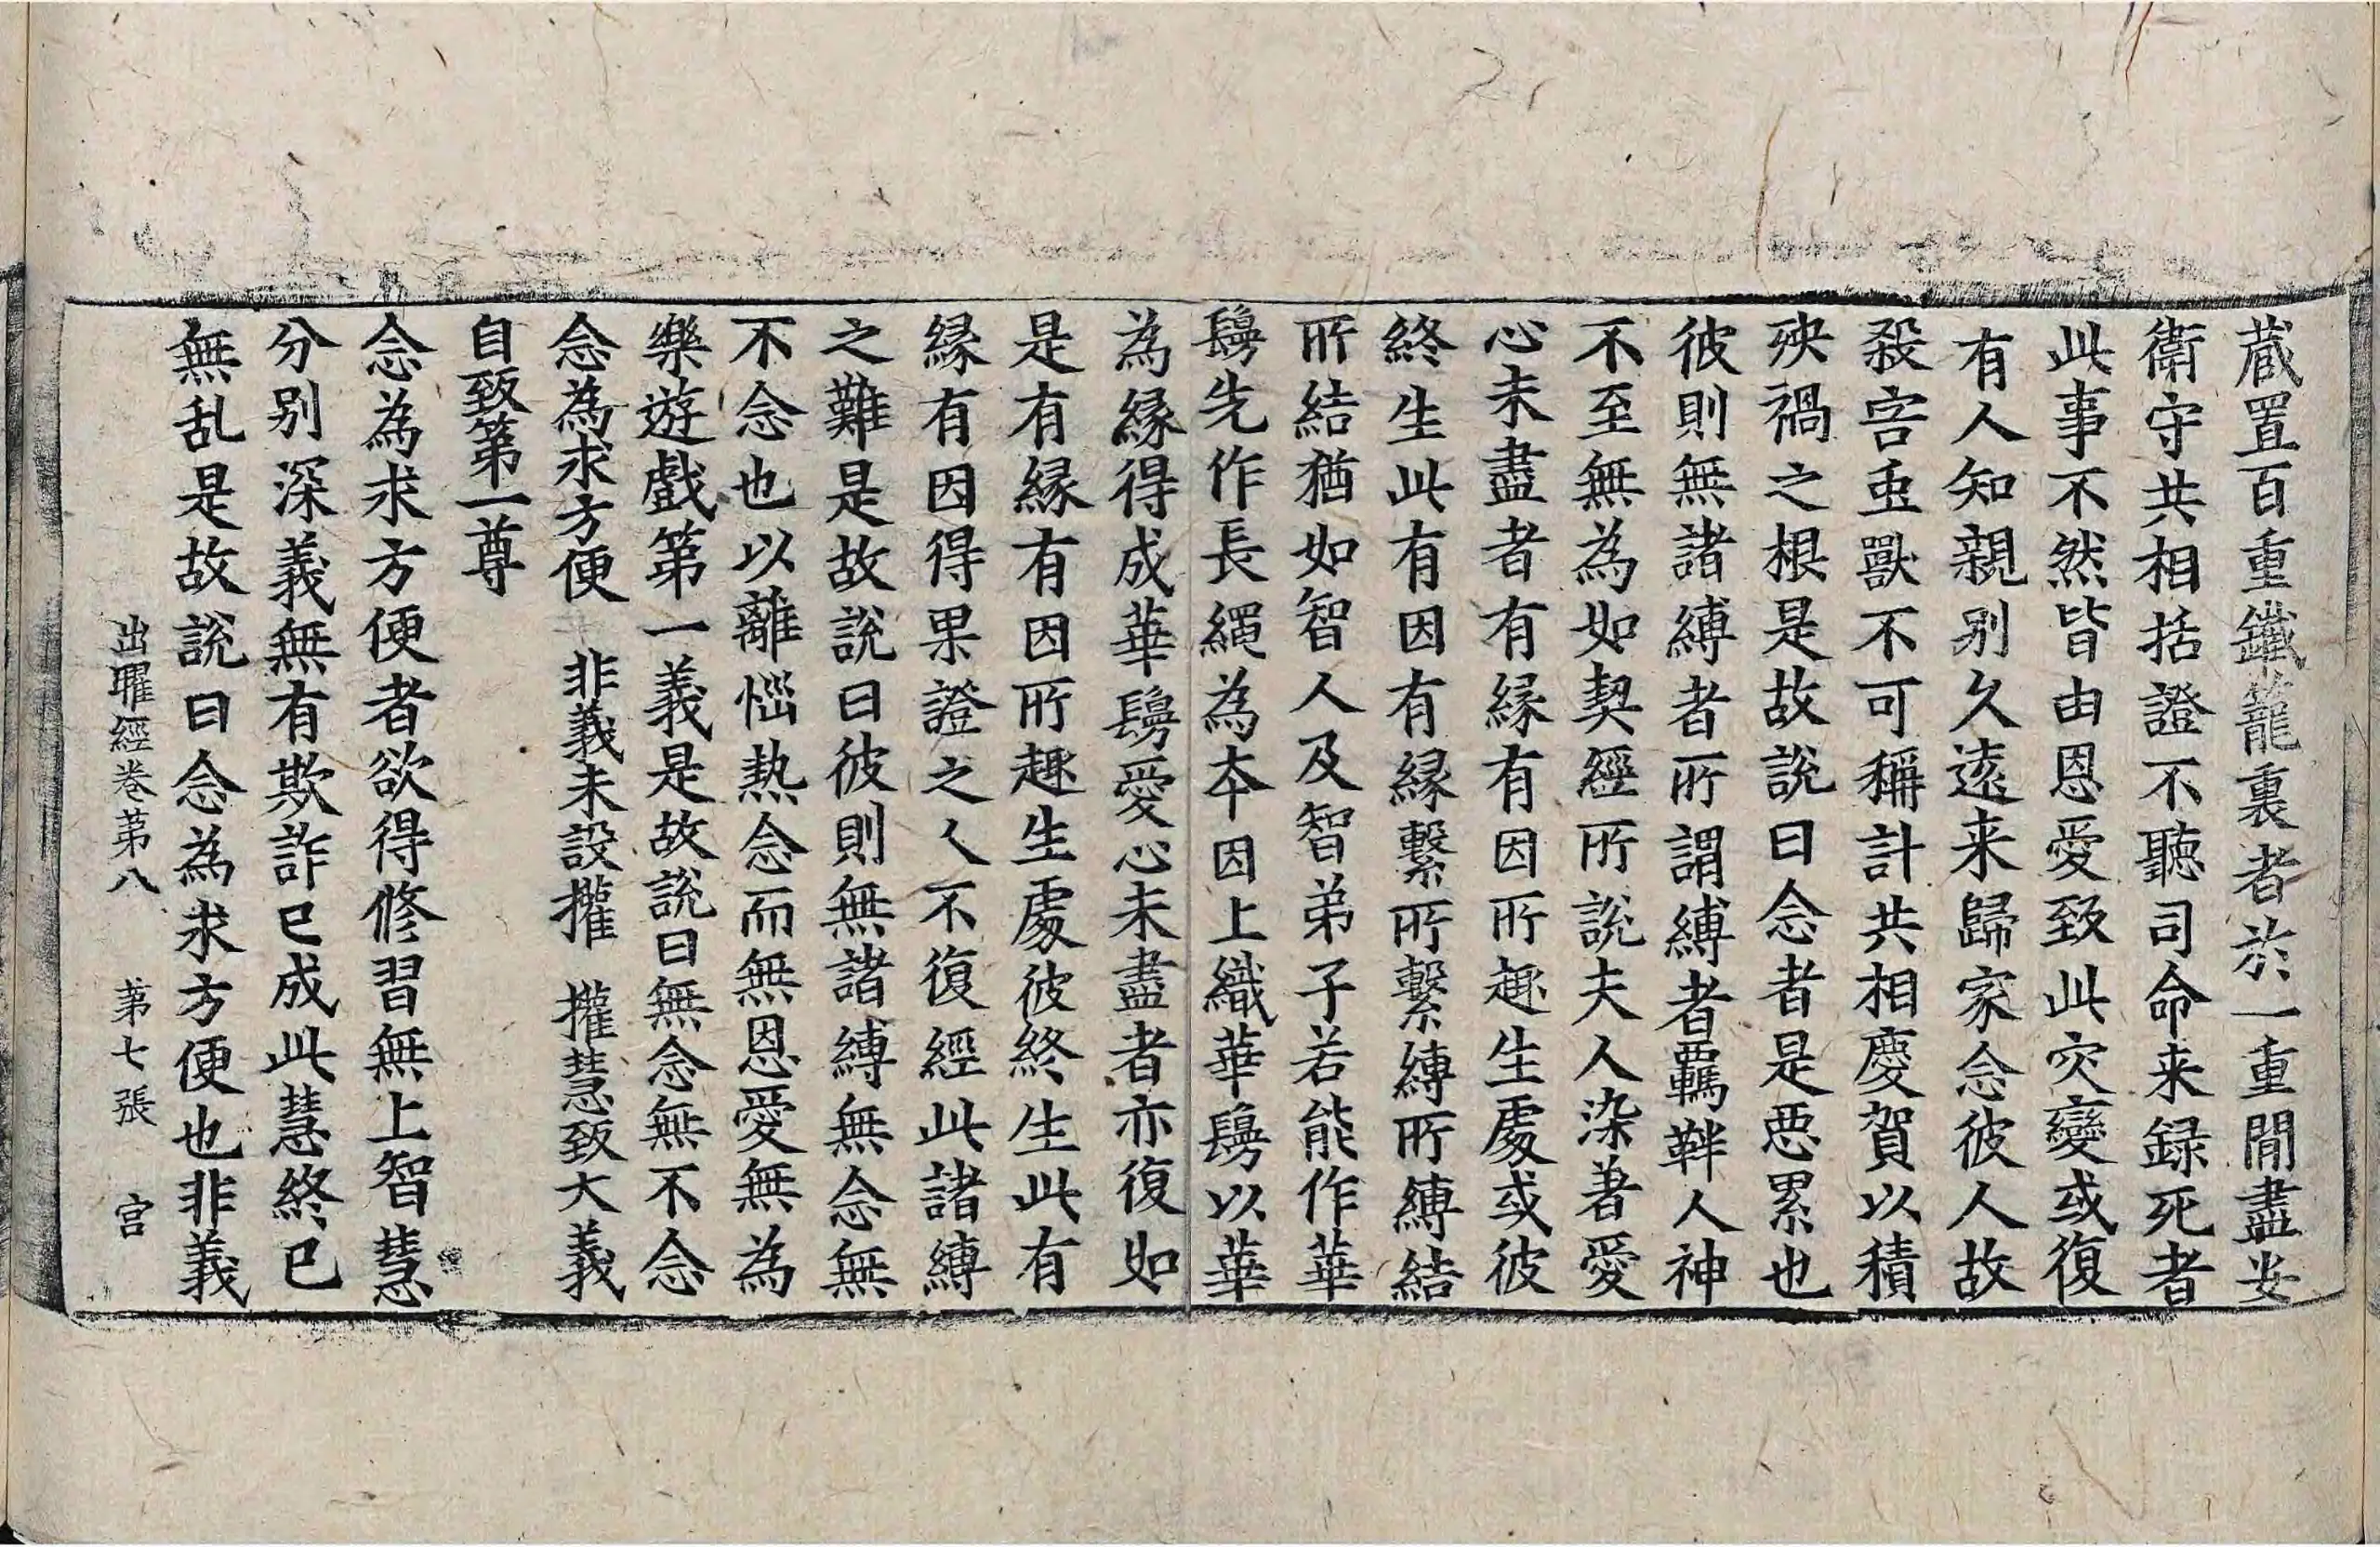 蔵置百重鐵籠裏者於一重閒盡安
衛守共相括證不聽司命来録死者
此事不然皆由恩愛致此灾變或復
有人知親别久遠来歸家念彼人故
殺害䖝獸不可稱計共相慶賀以積
殃禍之根是故說曰念者是悪累也
彼則無諸縛者所謂縛者羈靽人神
不至無為如契經所說夫人染著愛
心未盡者有縁有因所趣生處或彼
終生此有因有縁繫所繫縛所縛結
所結猶如智人及智弟子若能作華
鬘先作長繩為本因上織華鬘以華
為縁得成華鬘愛心未盡者亦復如
是有縁有因所趣生處彼終生此有
縁有因得果證之人不復經此諸縛
之難是故說曰彼則無諸縛無念無
不念也以離惱熱念而無恩愛無為
樂遊戲第一義是故說曰無念無不念
念為求方便　非義未設權　權慧致大義
自致第一尊
念為求方便者欲得修習無上智慧
分别深義無有欺詐已成此慧終已
無乱是故說曰念為求方便也非義
出曜經卷第八　第七張　宮